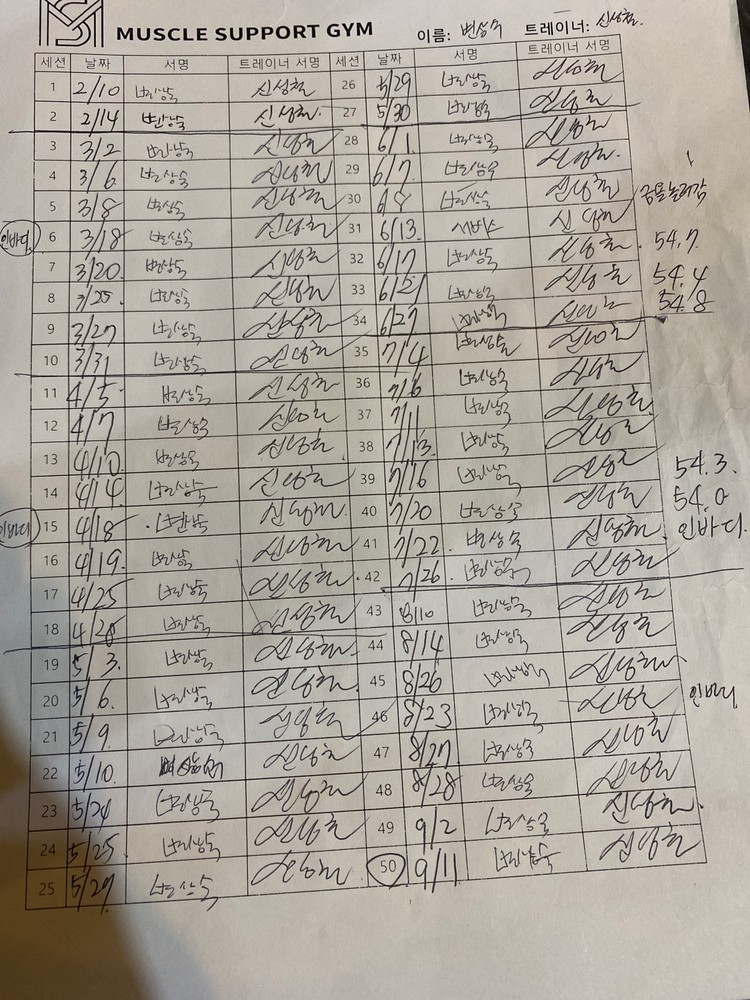 MUSCLE SUPPORT GYM 이름: 변상숙 트레이너: 신성철
세션 날짜 서명 트레이너 서명 세션 날짜 서명 트레이너 서명
1 2/10 변상숙 신성철 26 5/29 변상숙 신성철
2 2/14 변상숙 신성철 27 5/30 변상숙 신성철
3 3/2 변상숙 신성철 28 6/1 변상숙 신성철
4 3/6 변상숙 신성철 29 6/7 변상숙 신성철
5 3/8 변상숙 신성철 30 변상숙 신성철
인바디 6 3/18 변상숙 신성철 31 6/13 서비스 신성철
7 3/20 변상숙 신성철 32 6/17 변상숙 신성철 54.7
8 3/25 변상숙 신성철 33 6/21 변상숙 신성철 54.4
9 3/27 변상숙 신성철 34 6/27 변상숙 신성철 54.8
10 3/31 변상숙 신성철 35 7/4 변상숙 신성철
11 4/5 변상숙 신성철 36 7/6 변상숙 신성철
12 4/7 변상숙 신성철 37 7/11 변상숙 신성철
13 4/10 변상숙 신성철 38 7/13 변상숙 신성철
14 4/14 변상숙 신성철 39 7/16 변상숙 신성철 54.3
인바디 15 4/18 변상숙 신성철 40 7/20 변상숙 신성철 54.0
16 4/19 변상숙 신성철 41 7/22 변상숙 신성철 인바디
17 4/25 변상숙 신성철 42 7/26 변상숙 신성철
18 4/28 변상숙 신성철 43 8/10 변상숙 신성철
19 5/3 변상숙 신성철 44 8/14 변상숙 신성철
20 5/6 변상숙 신성철 45 8/26 변상숙 신성철
21 5/9 변상숙 신성철 46 8/23 변상숙 신성철 인바디
22 5/10 변상숙 신성철 47 8/27 변상숙 신성철
23 5/24 변상숙 신성철 48 8/28 변상숙 신성철
24 5/25 변상숙 신성철 49 9/2 변상숙 신성철
25 5/27 변상숙 신성철 50 9/11 변상숙 신성철